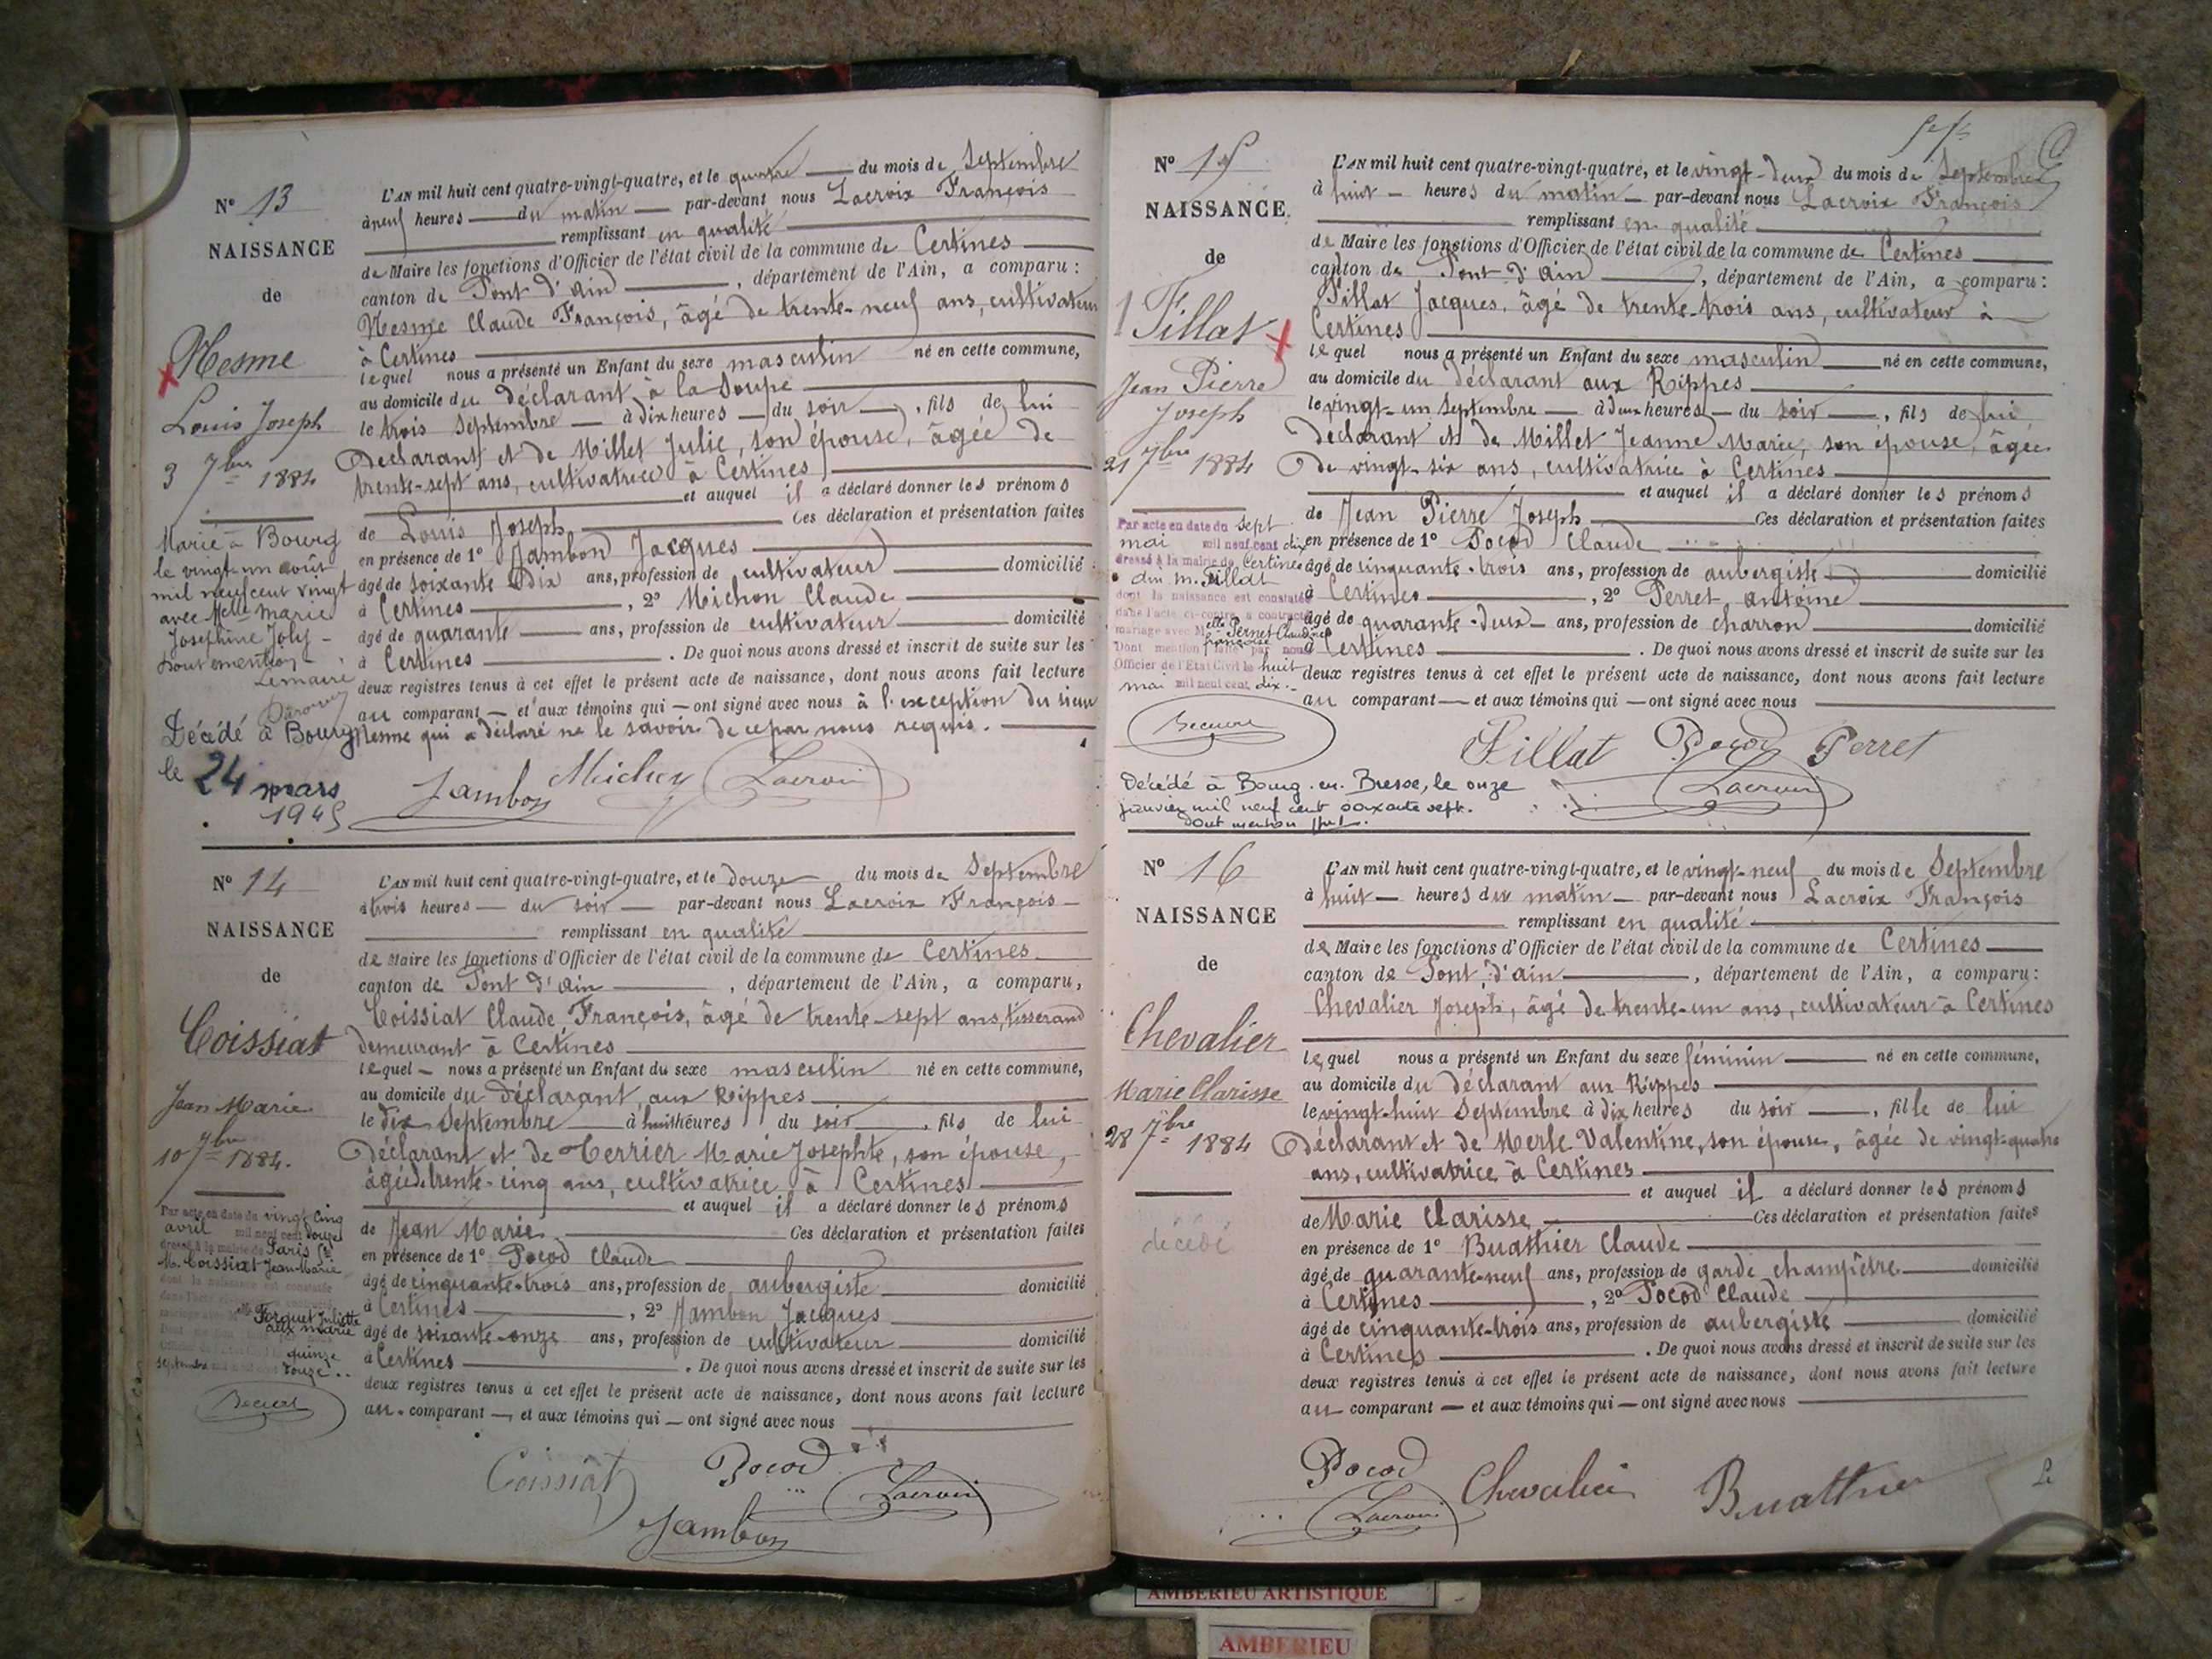 Nº 13
NAISSANCE
de
Mesme
Louis Joseph
3 7bre 1884
Marié à Bourg
le vingt-un août
mil neuf cent vingt
avec Melle Marie
Joséphine Joly -
Dont mention
Le maire
Décédé à Bourg
le 24 mars
1945
L'AN mil huit cent quatre-vingt-quatre, et le quatre du mois de Septembre
à neuf heures du matin par-devant nous Lacroix François
remplissant en qualité
de Maire les fonctions d'Officier de l'état civil de la commune de Certines
canton de Pont d'Ain , département de l'Ain, a comparu :
Mesme Claude François, âgé de trente-neuf ans, cultivateur
à Certines
lequel nous a présenté un Enfant du sexe masculin né en cette commune,
au domicile du déclarant à la Soupe
le trois Septembre à dix heures du soir , fils de lui
Déclarant et de Millet Julie, son épouse, âgée de
trente-sept ans, cultivatrice à Certines
et auquel il a déclaré donner les prénoms
de Louis Joseph. Ces déclaration et présentation faites
en présence de 1º Jambon Jacques
âgé de soixante dix ans, profession de cultivateur domicilié
à Certines , 2º Michon Claude
âgé de quarante ans, profession de cultivateur domicilié
à Certines . De quoi nous avons dressé et inscrit de suite sur les
deux registres tenus à cet effet le présent acte de naissance, dont nous avons fait lecture
au comparant — et aux témoins qui — ont signé avec nous à l'exception du sieur
Mesme qui a déclaré ne le savoir de ce par nous requis.
Jambon Michon Lacroix
Nº 14
NAISSANCE
de
Coissiat
Jean Marie
10 7bre 1884.
Par acte en date du vingt cinq
avril mil neuf cent douze
dressé à la mairie de Paris
M. Coissiat Jean-Marie
dont la naissance est constatée
Forquet Juliette
quinze
septembre douze..
L'AN mil huit cent quatre-vingt-quatre, et le douze du mois de Septembre
à trois heures — du soir — par-devant nous Lacroix François
remplissant en qualité
de Maire les fonctions d'Officier de l'état civil de la commune de Certines.
canton de Pont d'Ain , département de l'Ain, a comparu,
Coissiat Claude François, âgé de trente-sept ans, tisserand
demeurant à Certines
lequel — nous a présenté un Enfant du sexe masculin né en cette commune,
au domicile du déclarant, aux Rippes
le dix Septembre à huit heures du soir , fils de lui
Déclarant et de Terrier Marie Josephte, son épouse,
âgée de trente-cinq ans, cultivatrice à Certines
et auquel il a déclaré donner les prénoms
de Jean Marie Ces déclaration et présentation faites
en présence de 1º Pocod Claude
âgé de cinquante-trois ans, profession de aubergiste domicilié
à Certines , 2º Jambon Jacques
âgé de soixante-onze ans, profession de cultivateur domicilié
à Certines . De quoi nous avons dressé et inscrit de suite sur les
deux registres tenus à cet effet le présent acte de naissance, dont nous avons fait lecture
au comparant —, et aux témoins qui — ont signé avec nous
Coissiat Pocod Lacroix
Jambon
Nº 15
NAISSANCE
de
Fillat
Jean Pierre
Joseph
21 7bre 1884
Par acte en date du sept
mai mil neuf cent dix
dressé à la mairie de Certines
M. Fillat
dont la naissance est constatée
dans l'acte ci-contre a contracté
mariage avec Melle Pernet Claudine
Françoise
Dont mention faite par nous
Officier de l'Etat Civil le huit
mai mil neuf cent dix.-
Décédé à Bourg-en-Bresse, le onze
janvier mil neuf cent soixante sept.
Dont mention
L'AN mil huit cent quatre-vingt-quatre, et le vingt-deux du mois de Septembre
à huit — heures du matin — par-devant nous Lacroix François
remplissant en qualité
de Maire les fonctions d'Officier de l'état civil de la commune de Certines
canton de Pont-d'Ain , département de l'Ain, a comparu :
Fillat Jacques, âgé de trente-trois ans, cultivateur à
Certines
lequel nous a présenté un Enfant du sexe masculin né en cette commune,
au domicile du déclarant aux Rippes
le vingt-un Septembre — à deux heures — du soir , fils de lui
déclarant et de Millet Jeanne Marie, son épouse, âgée
de vingt-six ans, cultivatrice à Certines
et auquel il a déclaré donner les prénoms
de Jean Pierre Joseph Ces déclaration et présentation faites
en présence de 1º Pocod Claude
âgé de cinquante-trois ans, profession de aubergiste domicilié
à Certines , 2º Perret Antoine
âgé de quarante-deux ans, profession de charron domicilié
à Certines . De quoi nous avons dressé et inscrit de suite sur les
deux registres tenus à cet effet le présent acte de naissance, dont nous avons fait lecture
au comparant — et aux témoins qui — ont signé avec nous
Fillat Pocod Perret
Lacroix
Nº 16
NAISSANCE
de
Chevalier
Marie Clarisse
28 7bre 1884
décédé
L'AN mil huit cent quatre-vingt-quatre, et le vingt-neuf du mois de Septembre
à huit — heures du matin — par-devant nous Lacroix François
remplissant en qualité
de Maire les fonctions d'Officier de l'état civil de la commune de Certines
canton de Pont d'Ain , département de l'Ain, a comparu :
Chevalier Joseph, âgé de trente-un ans, cultivateur à Certines
lequel nous a présenté un Enfant du sexe féminin né en cette commune,
au domicile du déclarant aux Rippes
le vingt-huit Septembre à dix heures du soir , fille de lui
Déclarant et de Merle Valentine, son épouse, âgée de vingt-quatre
ans, cultivatrice à Certines
et auquel il a déclaré donner les prénoms
de Marie Clarisse Ces déclaration et présentation faites
en présence de 1º Buathier Claude
âgé de quarante-neuf ans, profession de garde champêtre domicilié
à Certines , 2º Pocod Claude
âgé de cinquante-trois ans, profession de aubergiste domicilié
à Certines . De quoi nous avons dressé et inscrit de suite sur les
deux registres tenus à cet effet le présent acte de naissance, dont nous avons fait lecture
au comparant — et aux témoins qui — ont signé avec nous
Pocod Chevalier Buathier
Lacroix
AMBERIEU ARTISTIQUE
AMBERIEU